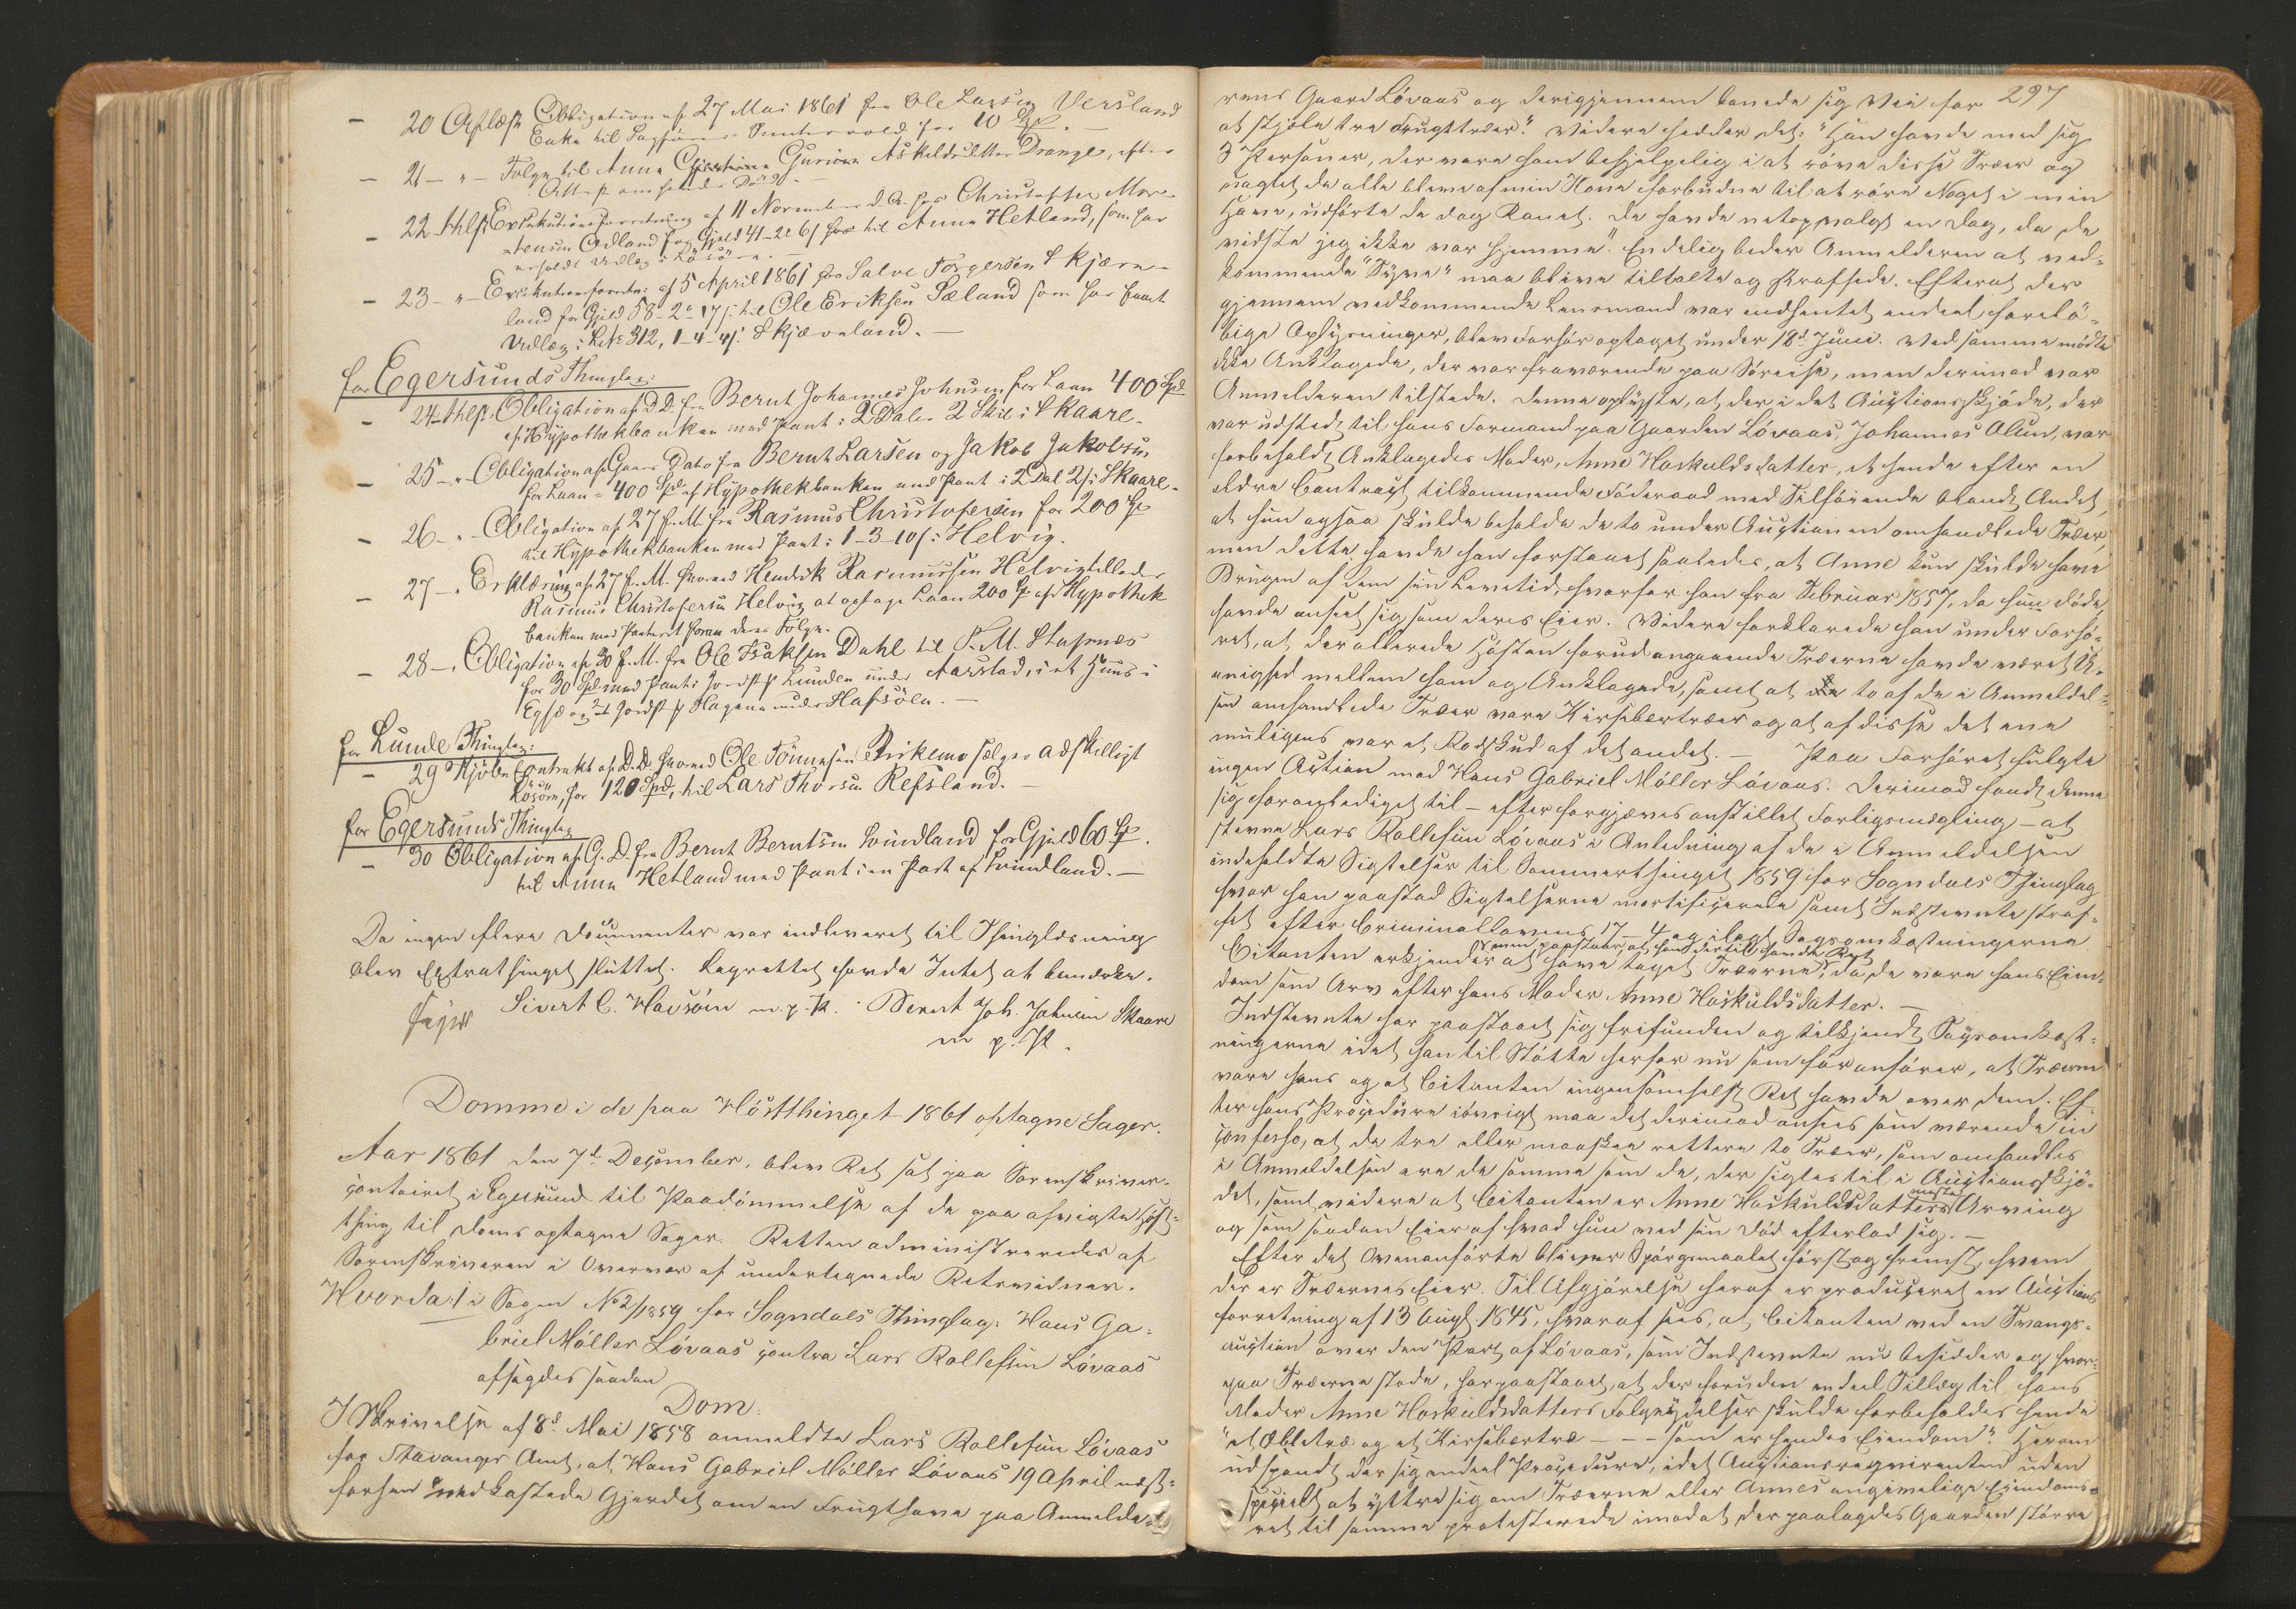 – 20 Aflæst Obligation af 27 Mai 1861 fra Ole Larsen Versland
Enke til Sagfører Sundtvold for 10 Spd. –
– 21 – " – Følge til Anna Christine Gurine Askildsdatter Drange, efter
Attest om hendes Død. –
– 22 Athlst Exekutionsforretning af 11 November d. A. hos Christoffer Mor-
tensen Aadland for Gjeld 41-2-6 s hos til Anna Hetland, som har
erholdt Udlæg i Løsøre. –
– 23 – " – Exekutionsforretn: af 5 April 1861 hos Salve Torgersen Skjæve-
land for Gjeld 58-2-17 s. til Ole Eriksen Sæland som har faaet
Udlæg i LNo 312, 1-4-4 s. Skjæveland. –
for Egersunds Thinglag:
– 24 Athlst. Obligation af D. D. fra Bernt Johannes Johnsen for Laan 400 Spd
af Hypothekbanken med Pant i 2 Daler 2 Skil: i Skaare.
– 25 – " – Obligation af Gaars Dato fra Bernt Larsen og Jakob Jakobsen
for Laan = 400 Spd af Hypothekbanken med Pant i 2 Dal 2 s i Skaare.
– 26 – " – Obligation af 27 f. M. fra Rasmus Christofersen for 200 Spd
til Hypothekbanken med Pant i 1-3-10 s i Helvig.
– 27 – " Erklæring af 27 f. M. hvorved Hendrik Rasmussen Helvig tillader
Rasmus Christofersen Helvig at optage Laan 200 Spd af Hypothek
banken med Prioritet foran dens Følge.
– 28 – " Obligation af 30 f. M. fra Ole Isaksen Dahl til P. M. Stapnæs
for 30 Spd med Pant i Jordst: Lunden under Aarstad, i et Huus i
Eg: og et Jordst: Hagene under Hafsöen. –
for Lunde Thinglag:
– 29 Kjøbe Contrakt af D. D. hvorved Ole Tönnesen Birkemo sælger adskilligt
Løsøre, for 120 Spd, til Lars Thorsen Refsland. –
for Egersunds Thinglag
– 30 Obligation af G. D. fra Bernt Berntsen Svindland for Gjeld 60 Spd.
til Anna Hetland med Pant i en Part af Svindland. –
Da ingen flere Documenter var indleveret til Thinglæsning
blev Extrathinget sluttet. Lagrettet havde Intet at bemærke.
Feyer Sivert C. Havsöen m. p. P. Bernt Joh. Johnsen Skaare
m p. P.
Domme i de paa Høstthinget 1861 optagne Sager.
Aar 1861 den 7d December, blev Ret sat paa Sorenskriver-
contoiret i Egersund til Paadømmelse af de paa afvigte Høst-
thing til Doms optagne Sager. Retten administreredes af
Sorenskriveren i Overvær af undertegnede Retsvidner.
Hvorda: 1 i Sagen No 2/1859 for Sogndals Thinglag: Hans Ga-
briel Møller Løvaas contra Lars Rollefsen Løvaas
afsagdes saadan
Dom.
I Skrivelse af 8d Mai 1858 anmeldte Lars Rollefsen Løvaas
for Stavanger Amt, at Hans Gabriel Møller Løvaas 19 April næst-
forhen nedkastede Gjerdet om en Frugthave paa Anmelde-
297
rens Gaard Løvaas og derigjennem banede sig Vei for
at stjæle tre Frugttræer". Videre hedder det: "Han havde med sig
3 Personer, der vare ham behjelpelig i at røve disse Træer og
uagtet de alle bleve af min Kone forbudne til at røre Noget i min
Have, udførte de dog Ranet. De havde netop valgt en Dag, da de
vidste jeg ikke var hjemme". Endelig beder Anmelderen at ved-
kommende "Tyve" maa blive tiltalte og straffede. Efterat der
gjennem vedkommende Lensmand var indhentet endeel forelø-
bige Oplysninger, blev Forhør optaget under 18d Juni. Ved samme mødte
ikke Anklagede, der var fraværende paa Søreise, men derimod var
Anmelderen tilstede. Denne oplyste, at der i det Auctionsskjøde, der
var udstedt til hans Formand paa Gaarden Løvaas, Johannes Olsen, var
forbeholdt Anklagedes Moder, Anne Hoskuldsdatter, et hende efter en
ældre Contract tilkommende Føderaad med Tilføiende blandt Andet,
at hun ogsaa skulde beholde de to under Auctionen omhandlede Træer,
men dette havde han forstaaet saaledes, at Anne kun skulde have
Brugen af dem sin Levetid, hvorfor han fra Februar 1857, da hun døde,
havde anseet sig som deres Eier. Videre forklarede han under Forhø-
ret, at der allerede Høsten forud angaaende Træerne havde været U-
enighed mellem ham og Anklagede, samt at to af de i Anmeldel-
sen omhandlede Træer vare Kirsebærtræer og at af disse det ene
muligens var et Rodskud af det andet. – Paa Forhøret fulgte
ingen Action mod Hans Gabriel Møller Løvaas. Derimod fandt denne
sig foranlediget til – efter forgjæves anstillet Forligsmægling – at
stevne Lars Rollefsen Løvaas i Anledning af de i Anmeldelsen
indeholdte Sigtelser til Sommerthinget 1859 for Sogndals Thinglag
hvor han paastod Sigtelserne mortificerede samt Indstevnte straf-
fet efter Criminallovens 17-4 og ilagt Sagsomkostningerne.
Citanten erkjender at have taget Træerne, men paastaar, at han dertil havde Ret, da de vare hans Eien-
dom som Arv efter hans Moder Anne Hoskuldsdatter. –
Indstevnte har paastaaet sig frifunden og tilkjendt Sagsomkost-
ningerne idet han til Støtte herfor nu som før anfører, at Træerne
vare hans og at Citanten ingensomhelst Ret havde over dem. Ef-
ter hans Procedure iøvrigt maa det derimod ansees som værende in
confesso, at de tre eller maaskee rettere to Træer, som omhandles
i Anmeldelsen ere de samme som de, der sigtes til i Auctionsskjø-
det, samt videre at Citanten er Anne Hoskuldsdatters eneste Arving
og som saadan Eier af hvad hun ved sin Død efterlod sig. –
Efter det Ovenanførte bliver Spørgsmaalet først og fremst, hvem
der er Træernes Eier. Til Afgjørelse heraf er produceret en Auctions
forretning af 13 Augst. 1845, hvoraf sees, at Citanten ved en Tvangs-
auction over den Part af Løvaas, som Indstevnte nu besidder og hvor-
paa Træerne stode, har paastaaet, at der foruden endeel Tillæg til hans
Moder Anne Hoskuldsdatters Følgeydelser skulde forbeholdes hende
"et Æbletræ og et Kirsebærtræ - - - som er hendes Eiendom". Herom
udspandt der sig endeel Procedure, idet Auctionsreqvirenten uden
specielt at yttre sig om Træerne eller Annes angivelige Eiendoms-
ret til samme protesterede imod at der paalagdes Gaarden større